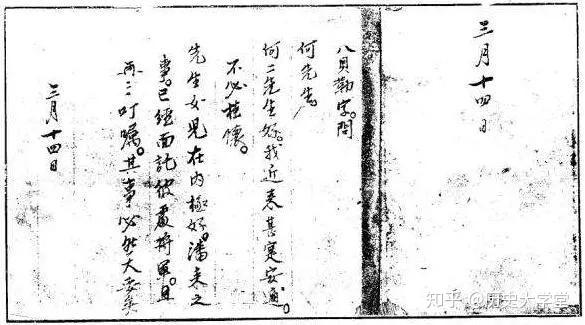 三月十四日
八貝勒字。問
何先生。
何二先生好。我近来甚寔安適。
不必掛懷。
先生女兒在內極好。潘耒之
事。已經面託彼處將軍。且
再三叮嘱。其事必然大妥矣
三月十四日
知乎 @历史大学堂